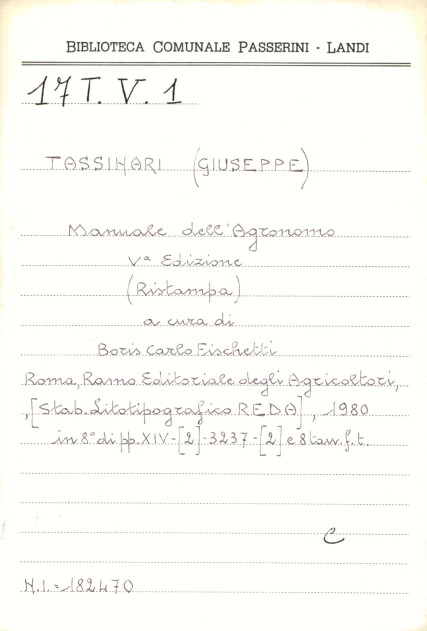 BIBLIOTECA COMUNALE PASSERINI - LANDI
17 T. V. 1
TASSINARI (GIUSEPPE)
Manuale dell'Agronomo
Vª Edizione
(Ristampa)
a cura di
Boris Carlo Fischetti
Roma, Ramo Editoriale degli Agricoltori,
,[Stab. Litotipografico REDA], 1980
in 8° di pp. XIV-[2]-3237-[2] e 8 tav. f. t.
C
N.I. = 182470